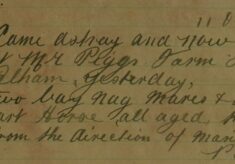 11
Came astray and now
at Mr Peggs Farm
lham, Yesterday,
two bay Nag Mares &
art Horse all aged,
from the direction of Man